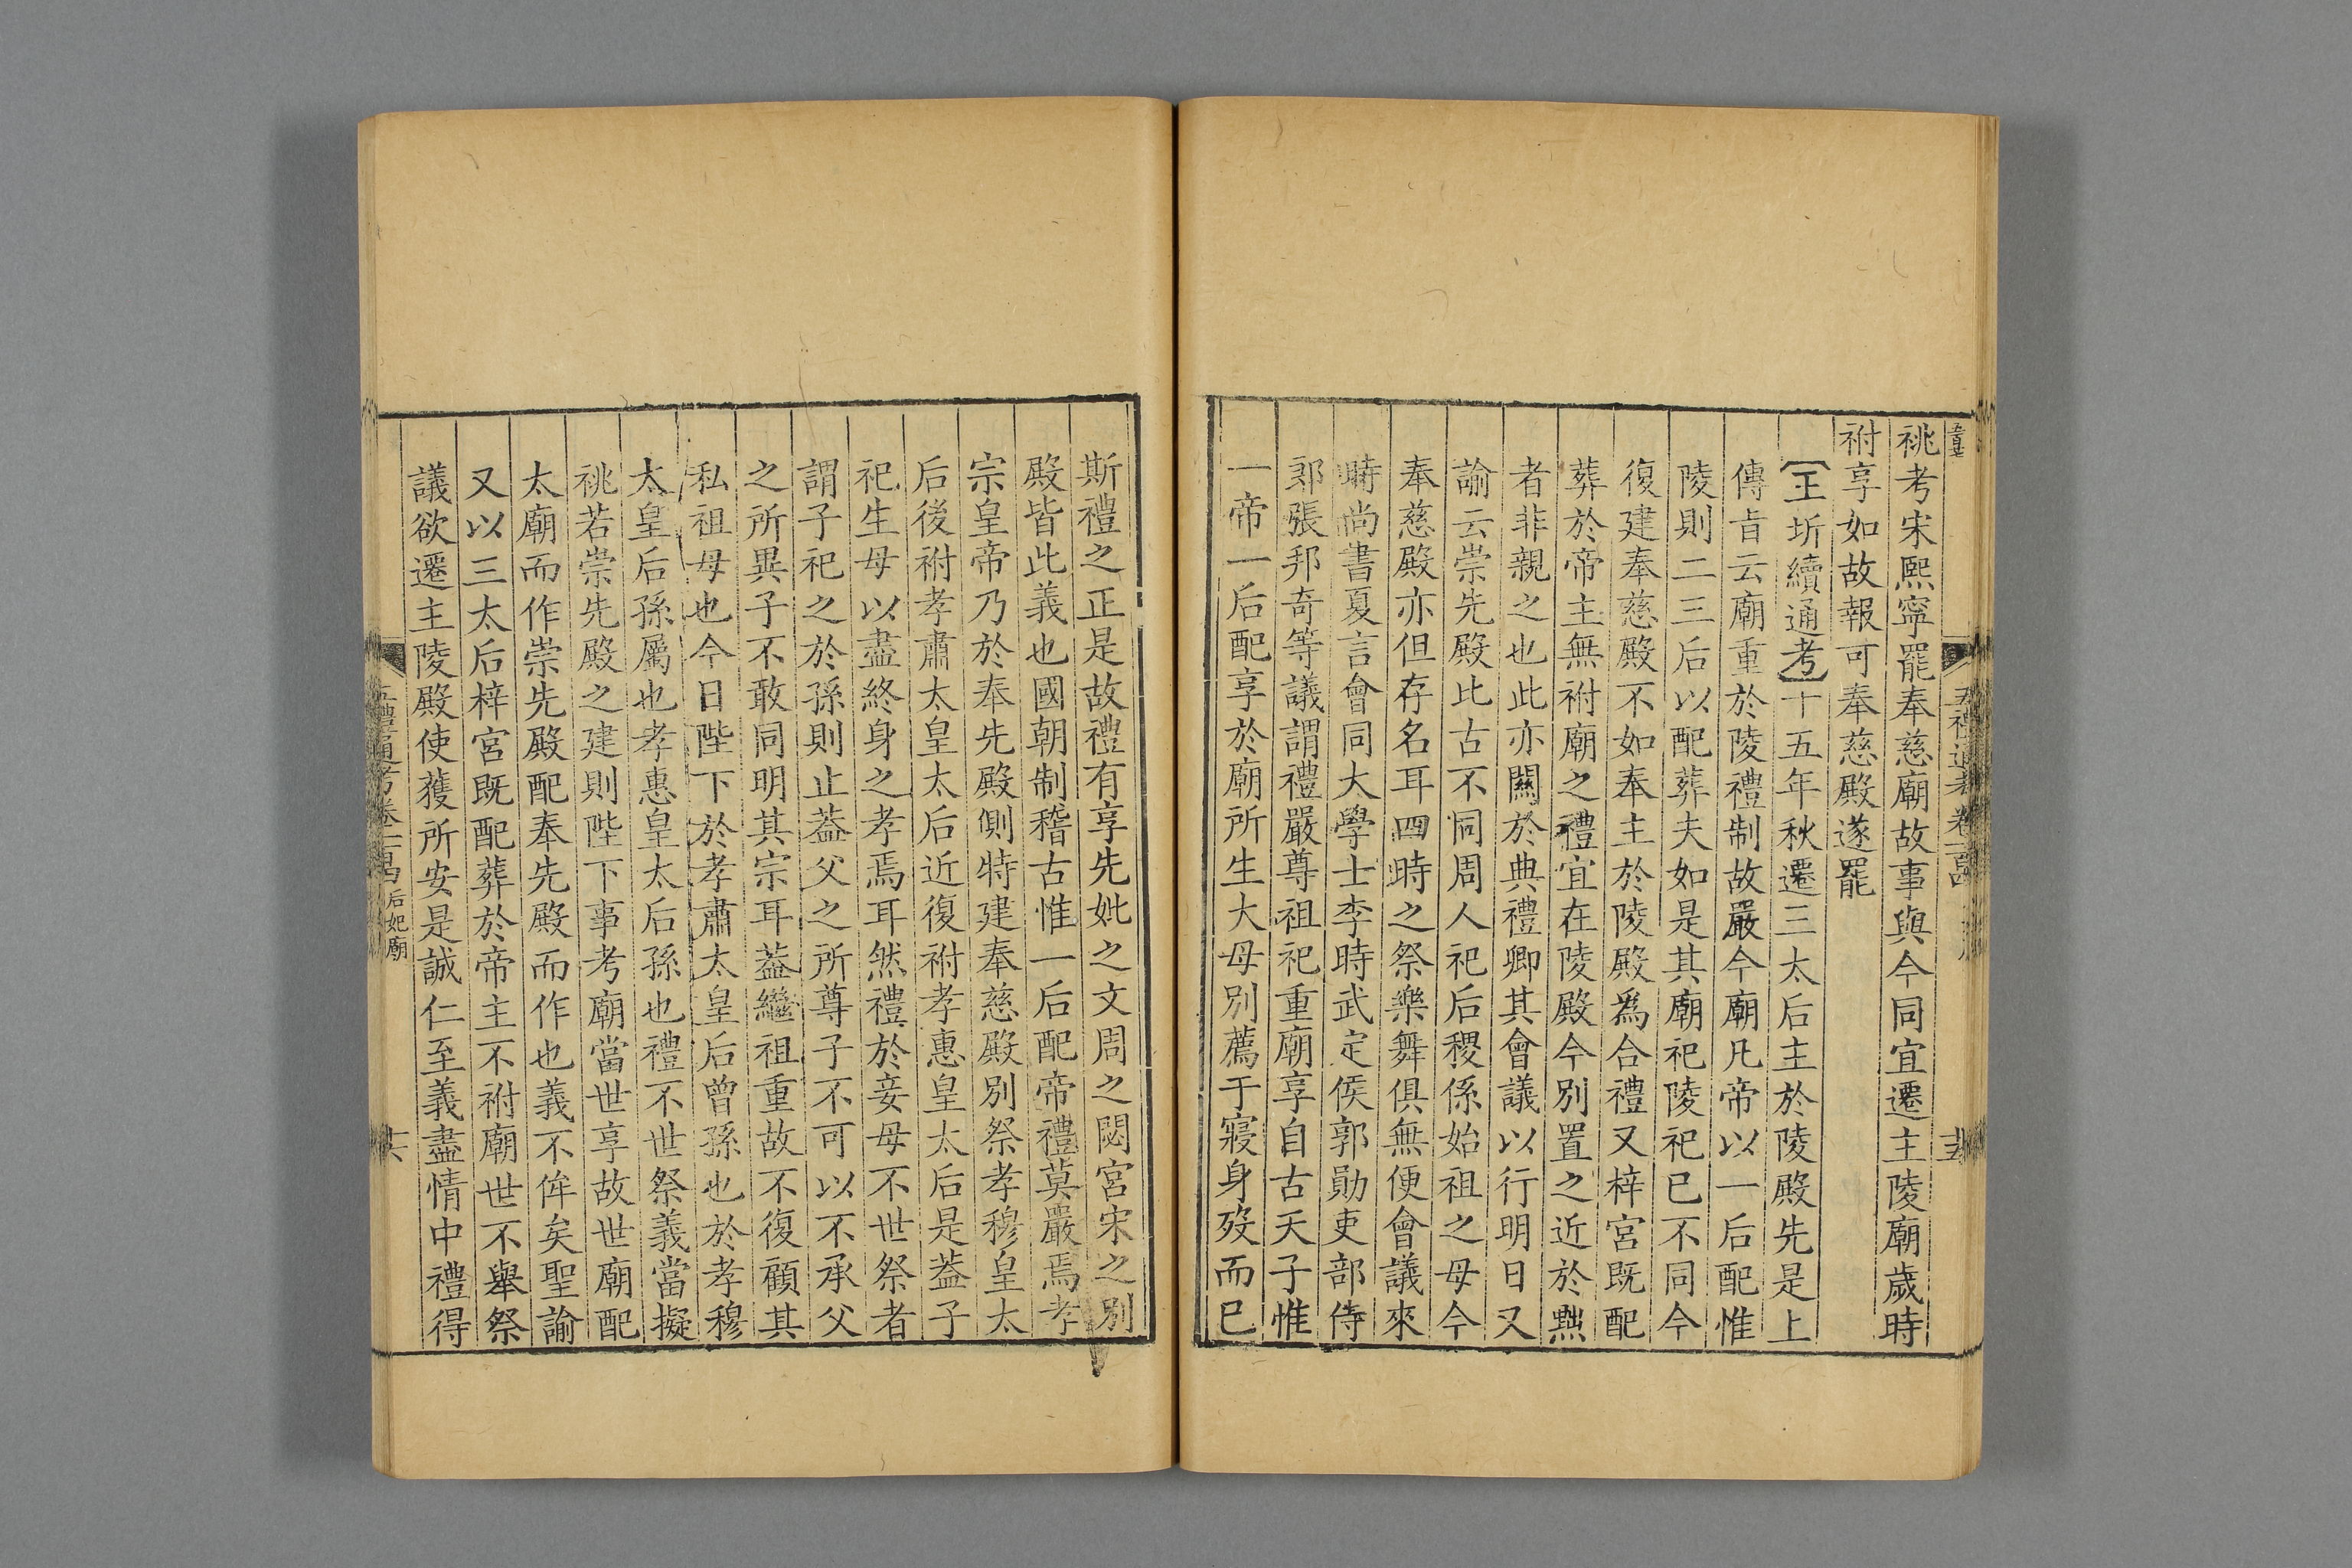 祧考宋熙寧罷奉慈廟故事與今同宜遷主陵廟歲時
祔享如故報可奉慈殿遂罷
【王圻續通考】十五年秋遷三太后主於陵殿先是上
傳旨云廟重於陵禮制故嚴今廟凡帝以一后配惟
陵則二三后以配葬夫如是其廟祀陵祀已不同今
復建奉慈殿不如奉主於陵殿爲合禮又梓宮既配
葬於帝主無祔廟之禮宜在陵殿今別置之近於㸃
者非親之也此亦闗於典禮卿其會議以行明日又
諭云崇先殿此古不同周人祀后稷係始祖之母今
奉慈殿亦但存名耳四時之祭樂舞俱無便會議來
時尚書夏言會同大學士李時武定侯郭勛吏部侍
郎張邦奇等議謂禮嚴尊祖祀重廟享自古天子惟
一帝一后配享於廟所生大母別薦于寢身歿而已
斯禮之正是故禮有享先妣之文周之閟宮宋之別
殿皆此義也國朝制稽古惟一后配帝禮莫嚴焉孝
宗皇帝乃於奉先殿側特建奉慈殿別祭孝穆皇太
后後祔孝肅太皇太后近復祔孝惠皇太后是葢子
祀生母以盡終身之孝焉耳然禮於妾母不世祭者
謂子祀之於孫則止葢父之所尊子不可以不承父
之所異子不敢同明其宗耳葢繼祖重故不復顧其
私祖母也今日陛下於孝肅太皇后曾孫也於孝穆
太皇后孫屬也孝惠皇太后孫也禮不世祭義當擬
祧若崇先殿之建則陛下事考廟當世享故世廟配
太廟而作崇先殿配奉先殿而作也義不侔矣聖諭
又以三太后梓宮既配葬於帝主不祔廟世不舉祭
議欲遷主陵殿使獲所安是誠仁至義盡情中禮得
五禮通考卷一百四 后妃廟